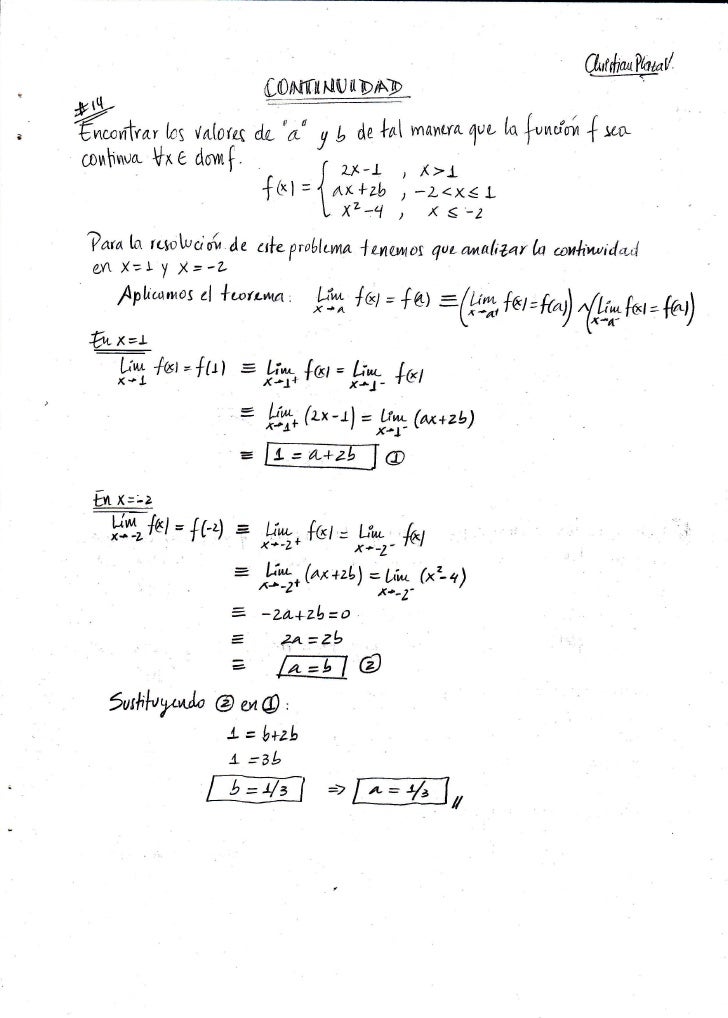 Christian Plaza V.
CONTINUIDAD
#14
Encontrar los valores de "a" y b de tal manera que la función f sea
continua ∀x ∈ dom f.
f(x) = { 2x-1 , x>1
ax+2b , -2<x≤1
x²-4 , x ≤ -2
Para la resolución de este problema tenemos que analizar la continuidad
en x=1 y x=-2
Aplicamos el teorema: Lim x→a f(x) = f(a) ≡ (Lim x→a⁺ f(x) = f(a)) ∧ (Lim x→a⁻ f(x) = f(a))
En x=1
Lim x→1 f(x) = f(1) ≡ Lim x→1⁺ f(x) = Lim x→1⁻ f(x)
≡ Lim x→1⁺ (2x-1) = Lim x→1⁻ (ax+2b)
≡ 1 = a+2b ①
En x=-2
Lim x→-2 f(x) = f(-2) ≡ Lim x→-2⁺ f(x) = Lim x→-2⁻ f(x)
≡ Lim x→-2⁺ (ax+2b) = Lim x→-2⁻ (x²-4)
≡ -2a+2b=0
≡ 2a=2b
≡ a=b ②
Sustituyendo ② en ①:
1 = b+2b
1 =3b
b = 1/3 ⇒ a = 1/3 //